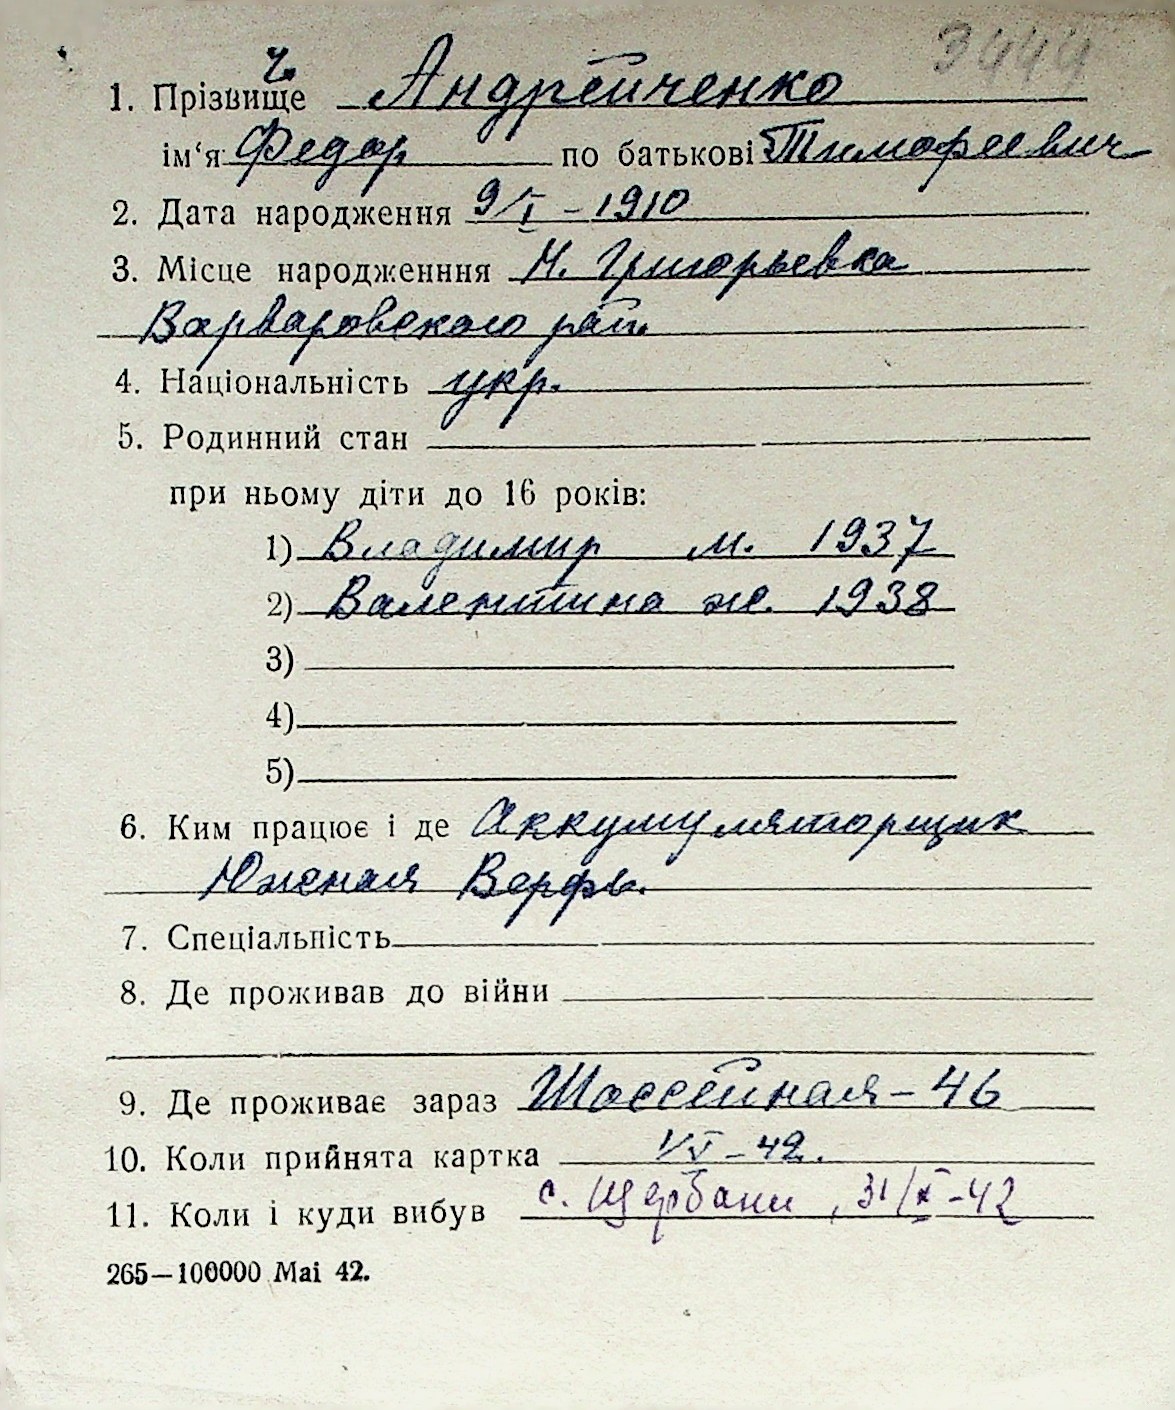 3444
ч.
1. Прізвище Андрейченко
ім‘я Федор по батькові Тимофеевич
2. Дата народження 9/I – 1910
3. Місце народженння Н. Григорьевка
Варваровского рай.
4. Національність укр.
5. Родинний стан
при ньому діти до 16 років:
1) Владимир м. 1937
2) Валентина ж. 1938
3)
4)
5)
6. Ким працює і де Аккумуляторщик
Южная Верфь.
7. Спеціальність
8. Де проживав до війни
9. Де проживає зараз Шоссейная – 46
10. Коли прийнята картка 1/V – 42.
11. Коли і куди вибув с. Щербани, 31/X – 42
265—100000 Mai 42.